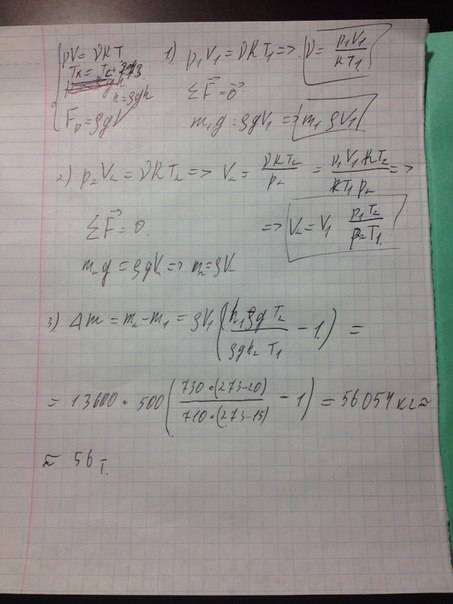 pV = νRT
Tк = Tс + 273
h = ρgh
Fр = ρgV
1) p₁V₁ = νRT₁ => ν = p₁V₁ / RT₁
ΣF⃗ = 0⃗
m₁g = ρgV₁ => m₁ = ρV₁
2) p₂V₂ = νRT₂ => V₂ = νRT₂ / p₂ = p₁V₁RT₂ / RT₁p₂ =>
ΣF⃗ = 0. => V₂ = V₁ p₁T₂ / p₂T₁
m₂g = ρgV₂ => m₂ = ρV₂
3) Δm = m₂ - m₁ = ρV₁ (h₁ρgT₂ / ρgh₂T₁ - 1) =
= 13600 · 500 (730·(273-20) / 710·(273-15) - 1) = 56054 кг ≈
≈ 56 т.